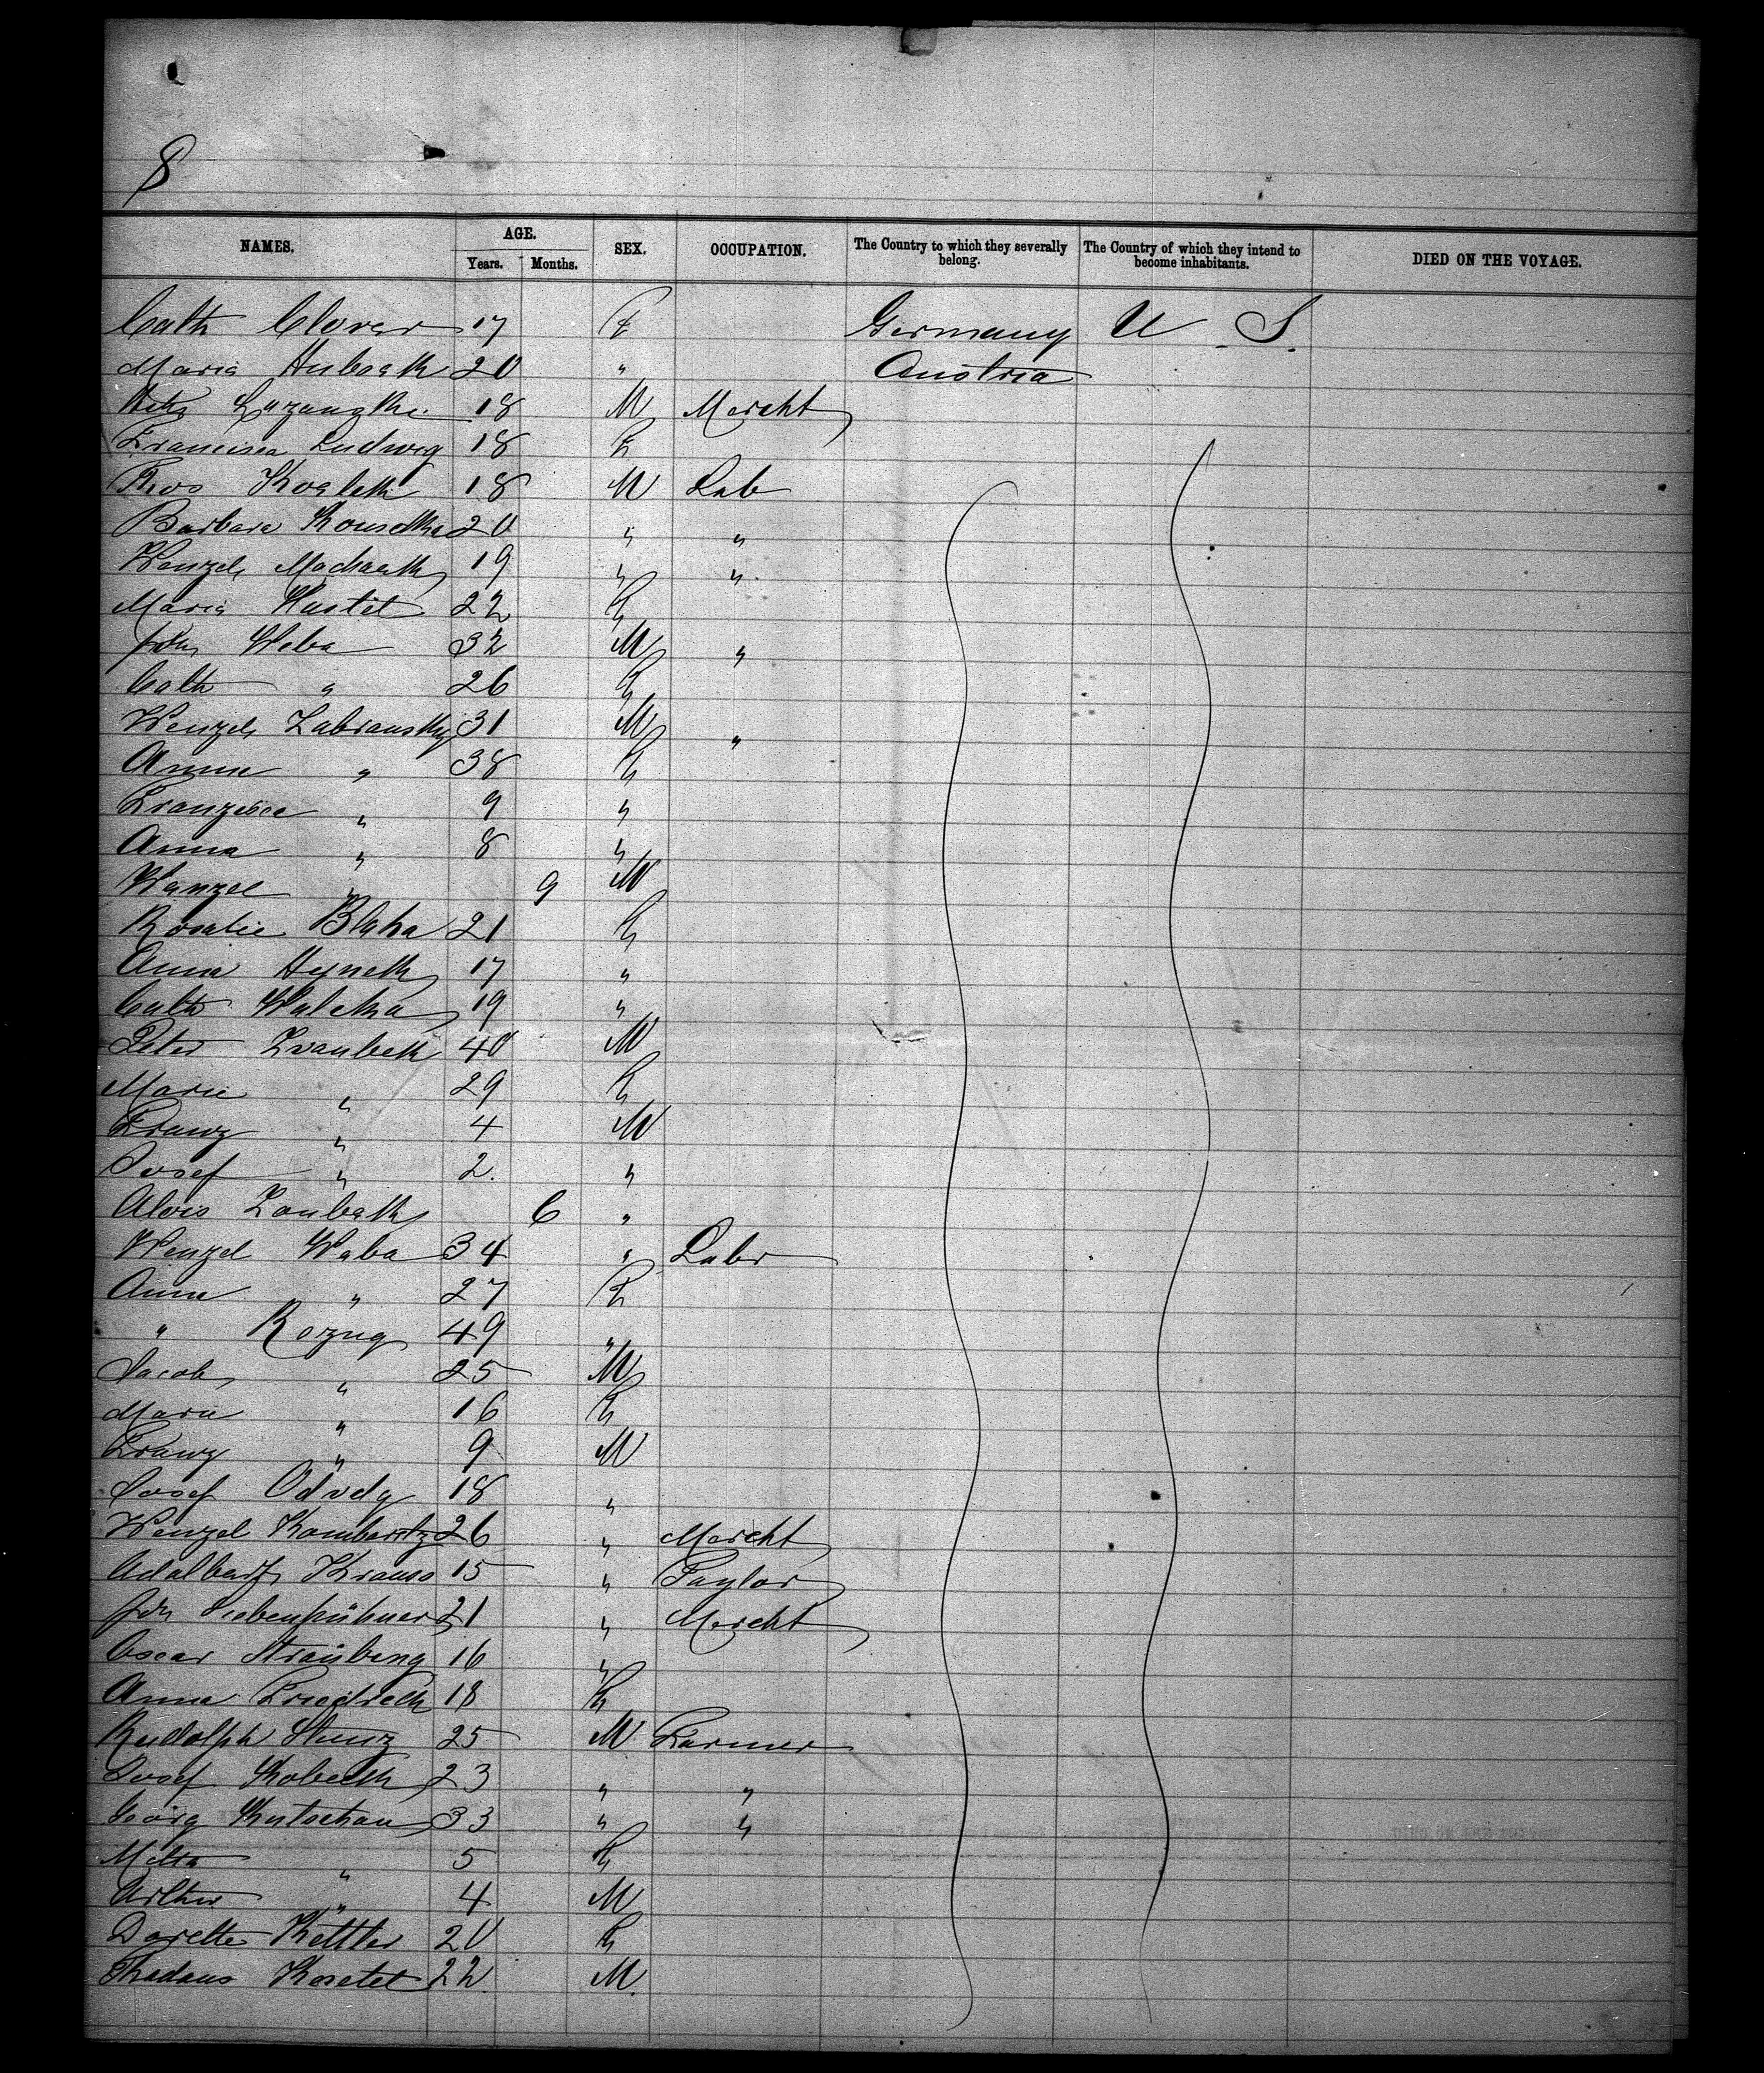 8
NAMES. AGE. SEX. OCCUPATION. The Country to which they severally belong. The Country of which they intend to become inhabitants. DIED ON THE VOYAGE.
Years. Months.
Cath Clover 17 F Germany U. S.
Maria Huboath 20 " Austria
18 M Mercht
Francisca Ludwig 18 F
18 M Lab
Barbara 20 " "
Wenzel 19 " "
Maria Kustet 22 F
Joh Weba 32 M "
Cath " 26 F
Wenzel Zabransky 31 M "
Anna " 38 F
Franzisca " 9 "
Anna " 8 "
Wenzel " 9 M
Rosalie Blaha 21 F
Anna Hynek 17 "
Cath Waletka 19 "
Peter Zvanbek 40 M
Marie " 29 F
Franz " 4 M
Josef " 2. "
Alois Zoubek 6 "
Wenzel Waba 34 " Labr
Anna " 27 F
" Rozug 49 "
Jacob " 25 M
Marie " 16 F
Franz " 9 M
Josef Odvdy 18 "
Wenzel Kombaritz 26 " Mercht
Adalbert Krauso 15 " Taylor
Joh Siebenhühner 21 " Mercht
Oscar Straubing 16 "
Anna Friedrich 18 F
Rudolph Stunz 25 M Farmer
Josef Kobeth 23 " "
Georg Kutschau 33 " "
Meta " 5 F
Arthur " 4 M
Dorette Kettler 20 F
Thadaus Kosetet 22 M.